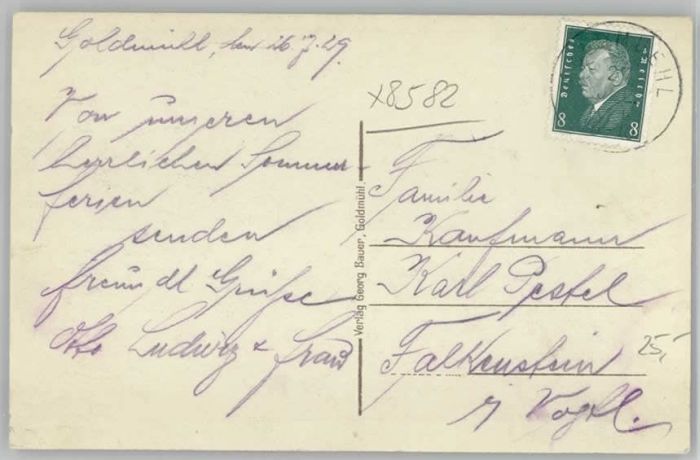 Goldmühl, den 26.7.29.
Von unseren
herrlichen Sommer-
ferien
senden
freundl Grüße
Otto Ludwig + Frau
x8582
Verlag Georg Bauer, Goldmühl.
Deutsches Reich
8 8
Familie
Kaufmann
Karl Pestel
Falkenstein
i/ Vogtl.
25,-